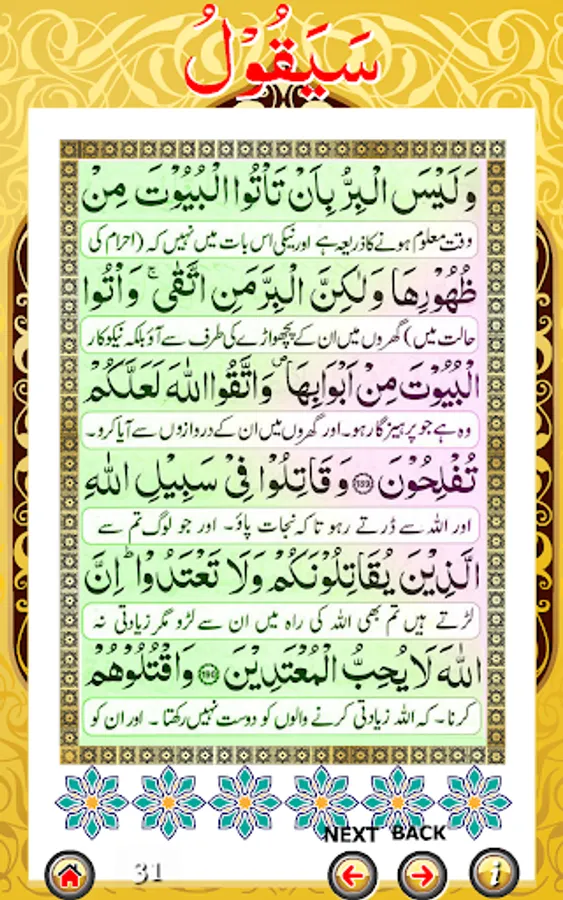 سَيَقُوۡلُ
وَلَيۡسَ الۡبِرُّ بِاَنۡ تَاۡتُوا الۡبُيُوۡتَ مِنۡ
وقت معلوم ہونے کا ذریعہ ہے اور نیکی اس بات میں نہیں کہ (احرام کی
ظُهُوۡرِهَا وَلٰكِنَّ الۡبِرَّ مَنِ اتَّقٰى ۚ وَاۡتُوا
حالت میں) گھروں میں ان کے پچھواڑے کی طرف سے آؤ بلکہ نیکوکار
الۡبُيُوۡتَ مِنۡ اَبۡوَابِهَا ۖ وَاتَّقُوا اللّٰهَ لَعَلَّكُمۡ
وہ ہے جو پرہیز گار ہو۔ اور گھروں میں ان کے دروازوں سے آیا کرو۔
تُفۡلِحُوۡنَ ﴿189﴾ وَقَاتِلُوۡا فِىۡ سَبِيۡلِ اللّٰهِ
اور اللہ سے ڈرتے رہو تا کہ نجات پاؤ۔ اور جو لوگ تم سے
الَّذِيۡنَ يُقَاتِلُوۡنَكُمۡ وَلَا تَعۡتَدُوۡا ؕ اِنَّ
لڑتے ہیں تم بھی اللہ کی راہ میں ان سے لڑو مگر زیادتی نہ
اللّٰهَ لَا يُحِبُّ الۡمُعۡتَدِيۡنَ ﴿190﴾ وَاقۡتُلُوۡهُمۡ
کرنا۔ کہ اللہ زیادتی کرنے والوں کو دوست نہیں رکھتا۔ اور ان کو
NEXT BACK
31
i